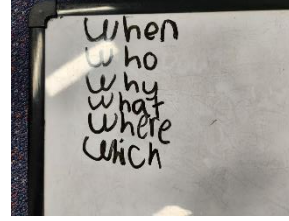 When
Who
Why
What
Where
Which